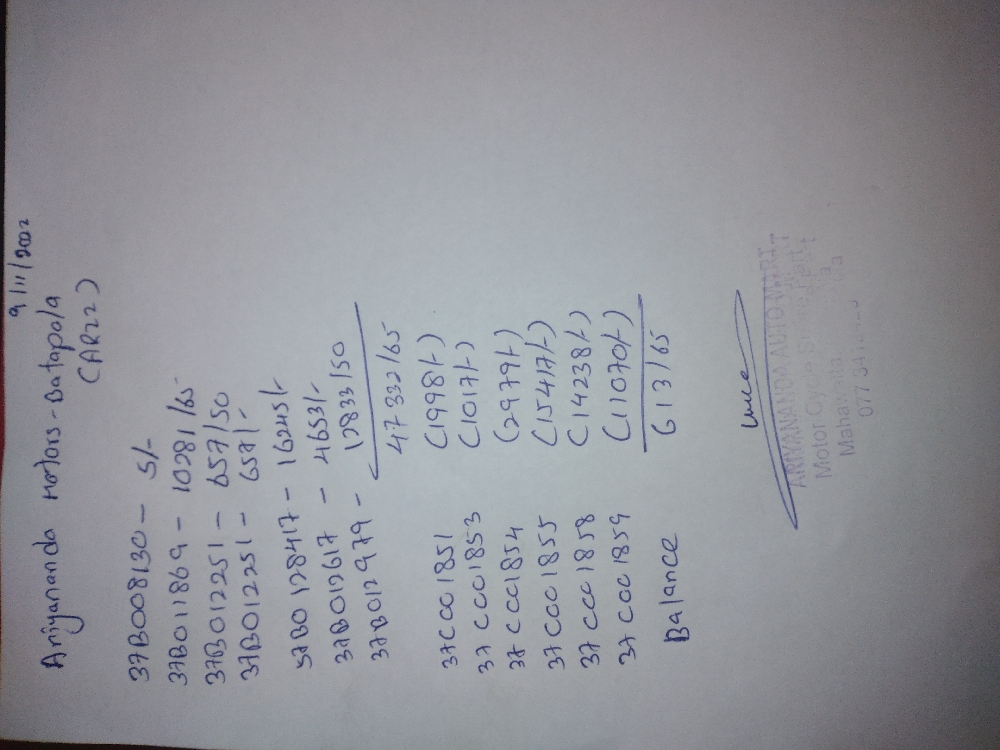 9/11/2022
Ariyananda Motors - Batapola
(AR22)
37B008130 - 5/-
37B011869 - 10281/65
37B012251 - 657/50
37B012251 - 657/-
37B0128417 - 16245/-
37B012617 - 4653/-
37B012979 - 12833/50
47332/65
37CO01851 (1998/-)
37CO01853 (1017/-)
37CO01854 (2979/-)
37CO01855 (15417/-)
37CO01858 (14238/-)
37CO01859 (11070/-)
Balance 613/65
ARIYANANDA AUTO MART
Motor Cycle
077